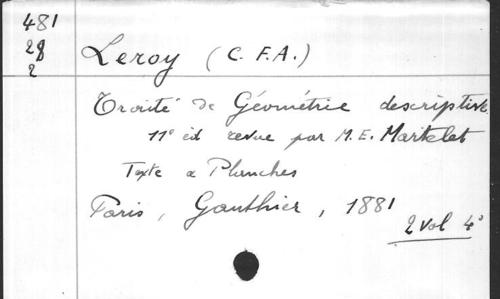 481
28
2
Leroy (C. F. A.)
Traité de Géométrie descriptive
11e éd revue par M. E. Martelet
Texte & Planches
Paris, Gauthier, 1881
2 vol 4°